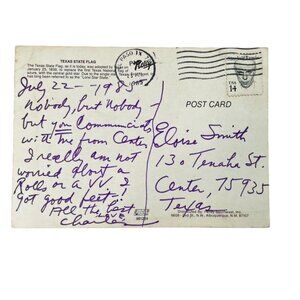 TEXAS STATE FLAG
The Texas State Flag, as it is today, was adopted by
January 25, 1839, to replace the first Texas National flag of
azure, with the central gold star. Due to the single star
has long been referred to as the "Lone Star State."
EL PASO TX
USA
14
POST CARD
July 22 - 1985
Nobody, but nobody -
but you communicates
with me from Center,
I really am not
worried about a
Rolls or a VV. I
got good feet!
All the best
Love
Charles
Eloise Smith
130 Tenaha St.
Center, 75935
Texas
Distributed by Petley
Albuquerque, N.M. 87107